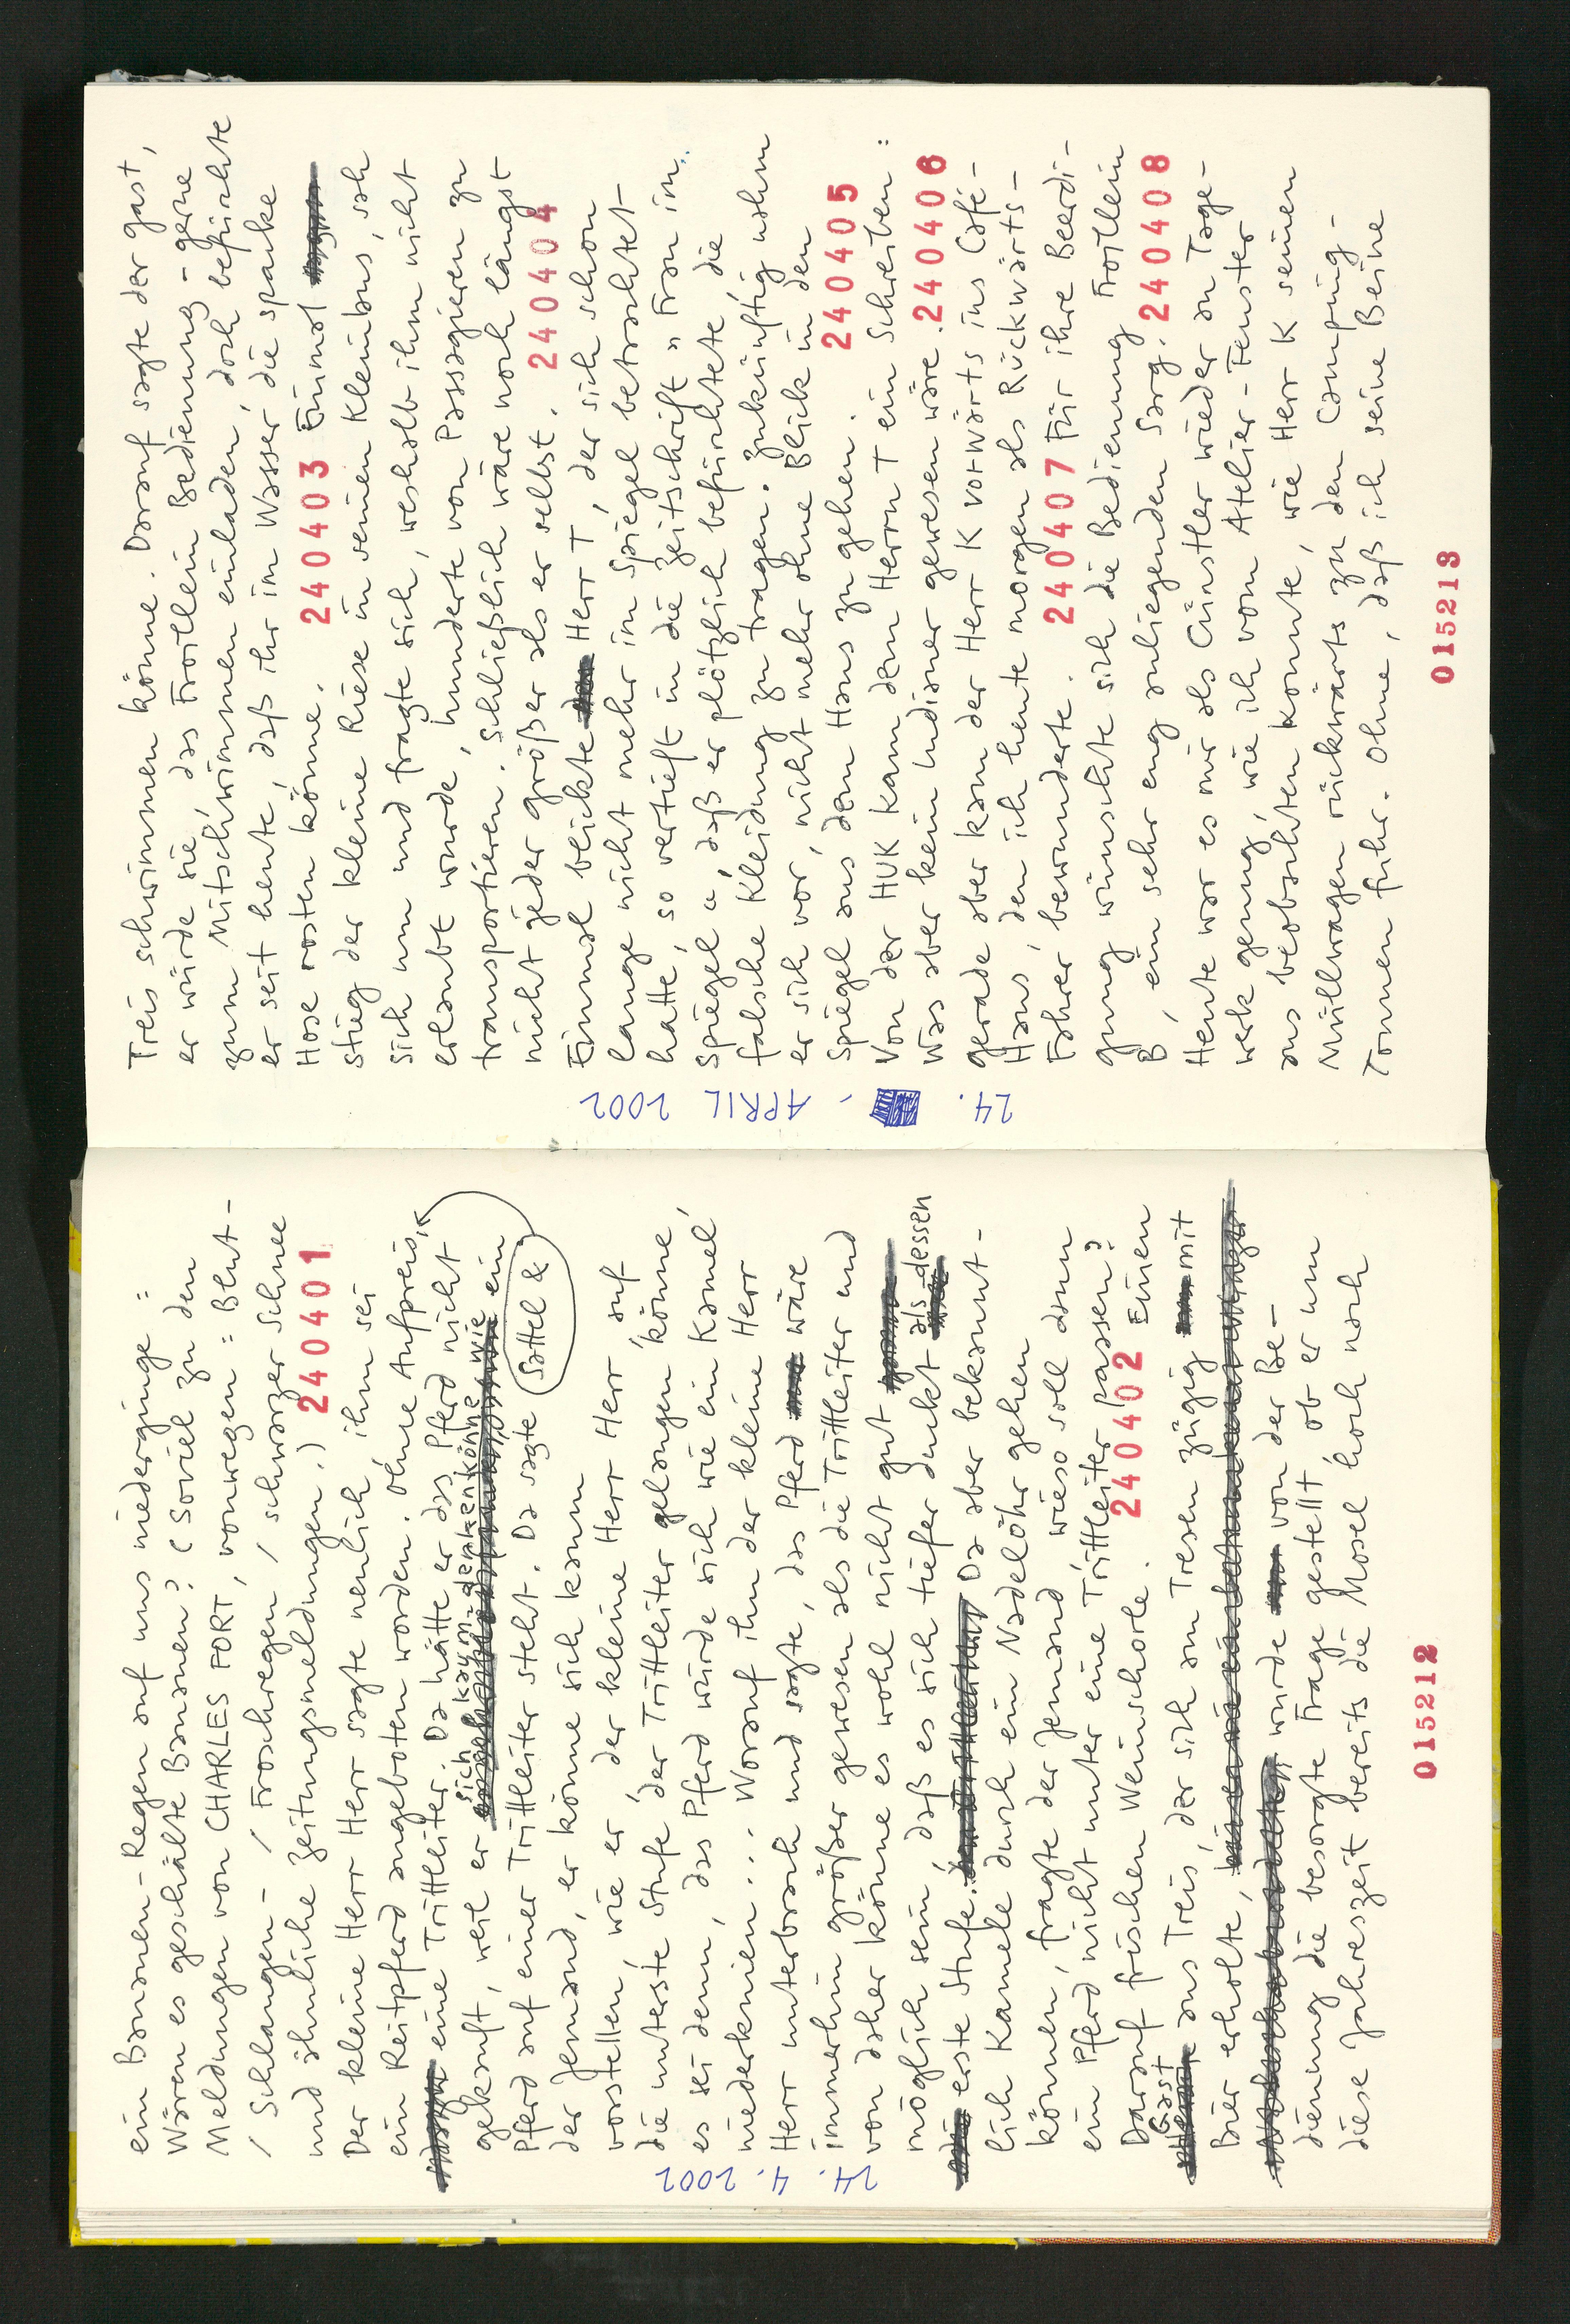 24. 4. 2002
ein Bananen-Regen auf uns niederginge =
Wären es geschälte Bananen? (Soviel zu den
Meldungen von CHARLES FORT, vonwegen = Blut-
/ Schlangen- / Froschregen / schwarzer Schnee
und ähnliche Zeitungsmeldungen.) 240401
Der kleine Herr sagte neulich, ihm sei
ein Reitpferd angeboten worden. Ohne Aufpreis,
eine Trittleiter. Da hätte er das Pferd nicht
gekauft, weil er sich kaum denken könne wie ein
Pferd auf einer Trittleiter steht. Da sagte Sattel &
der Jemand, er könne sich kaum
vorstellen, wie er, der kleine Herr Herr, auf
die unterste Stufe der Trittleiter gelangen könne,
es sei denn, das Pferd würde sich wie ein Kamel
niederknien... Worauf ihn der kleine Herr
Herr unterbrach und sagte, das Pferd wäre
immerhin größer gewesen als die Trittleiter und
von daher könne es wohl nicht gut
möglich sein, daß es sich tiefer duckt als dessen
erste Stufe. Da aber bekannt-
lich Kamele durch ein Nadelöhr gehen
können, fragte der Jemand, wieso soll dann
ein Pferd nicht unter eine Trittleiter passen?
Darauf frischen Weinschorle. 240402 Einen
Gast aus Treis, der sich am Tresen zügig mit
Bier erholte,
wurde von der Be-
dienung die besorgte Frage gestellt, ob er um
diese Jahreszeit bereits die Mosel hoch nach
015212
24. APRIL 2002
Treis schwimmen könne. Darauf sagte der Gast,
er würde sie, das Froillein Bedienung - gerne
zum Mitschwimmen einladen, doch befürchte
er seit heute, daß ihr im Wasser die spanke
Hose rosten könne. 240403 Einmal
stieg der kleine Riese in seinen Kleinbus, sah
sich um und fragte sich, weshalb ihm nicht
erlaubt wurde, hunderte von Passagieren zu
transportieren. Schließlich wäre noch längst
nicht jeder größer als er selbst. 240404
Einmal beickte Herr T, der sich schon
lange nicht mehr im Spiegel betrachtet-
hatte, so vertieft in die Zeitschrift „ Frau im
Spiegel “, daß er plötzlich befürchtete, die
falsche Kleidung zu tragen. Zukünftig nahm
er sich vor, nicht mehr ohne Blick in den
Spiegel aus dem Haus zu gehen. 240405
Von der HUK kam dem Herrn T ein Schreiben:
Was aber kein Indianer gewesen wäre. 240406
Gerade aber kam der Herr K vorwärts ins Café-
Haus, den ich heute morgen als Rückwärts-
Fahrer, bewunderte. 240407 Für ihre Beerdi-
gung wünschte sich die Bedienung Froillein
B, ein sehr eng anliegenden Sarg. 240408
Heute war es mir als Cünstler wieder an Tage-
werk genug, wie ich vom Atelier-Fenster
aus beobachten konnte, wie Herr K seinen
Müllwagen rückwärts zu den Camping-
Tonnen fuhr. Ohne, daß ich seine Beine
015213